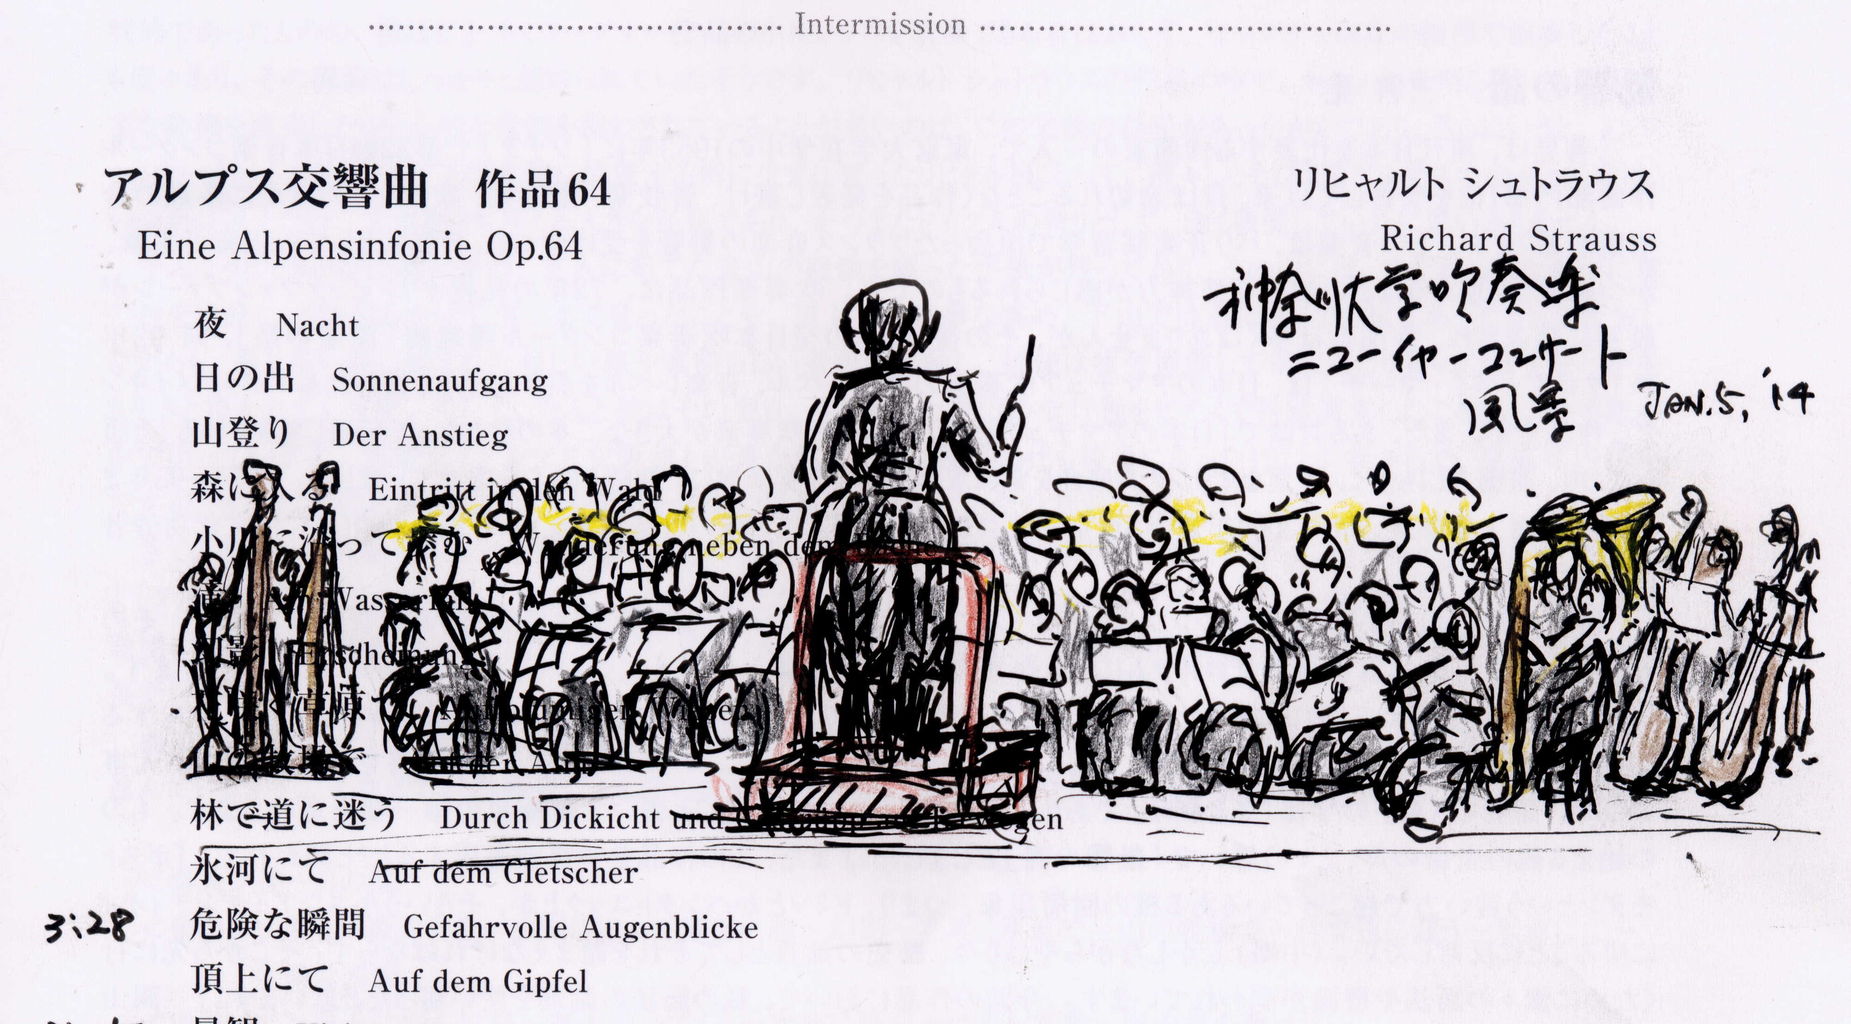 Intermission
アルプス交響曲 作品64
リヒャルト シュトラウス
Eine Alpensinfonie Op.64
Richard Strauss
神奈川大学吹奏楽
ニューイヤーコンサート
風景 JAN.5,'14
夜 Nacht
日の出 Sonnenaufgang
山登り Der Anstieg
森に入る Eintritt in den Wald
小川に沿って歩む Wanderung neben dem Bache
Am Wasserfall
幻影 Erscheinung
Auf blumigen Wiesen
林で道に迷う Durch Dickicht und Gestrüpp auf Irrwegen
氷河にて Auf dem Gletscher
3:28 危険な瞬間 Gefahrvolle Augenblicke
頂上にて Auf dem Gipfel